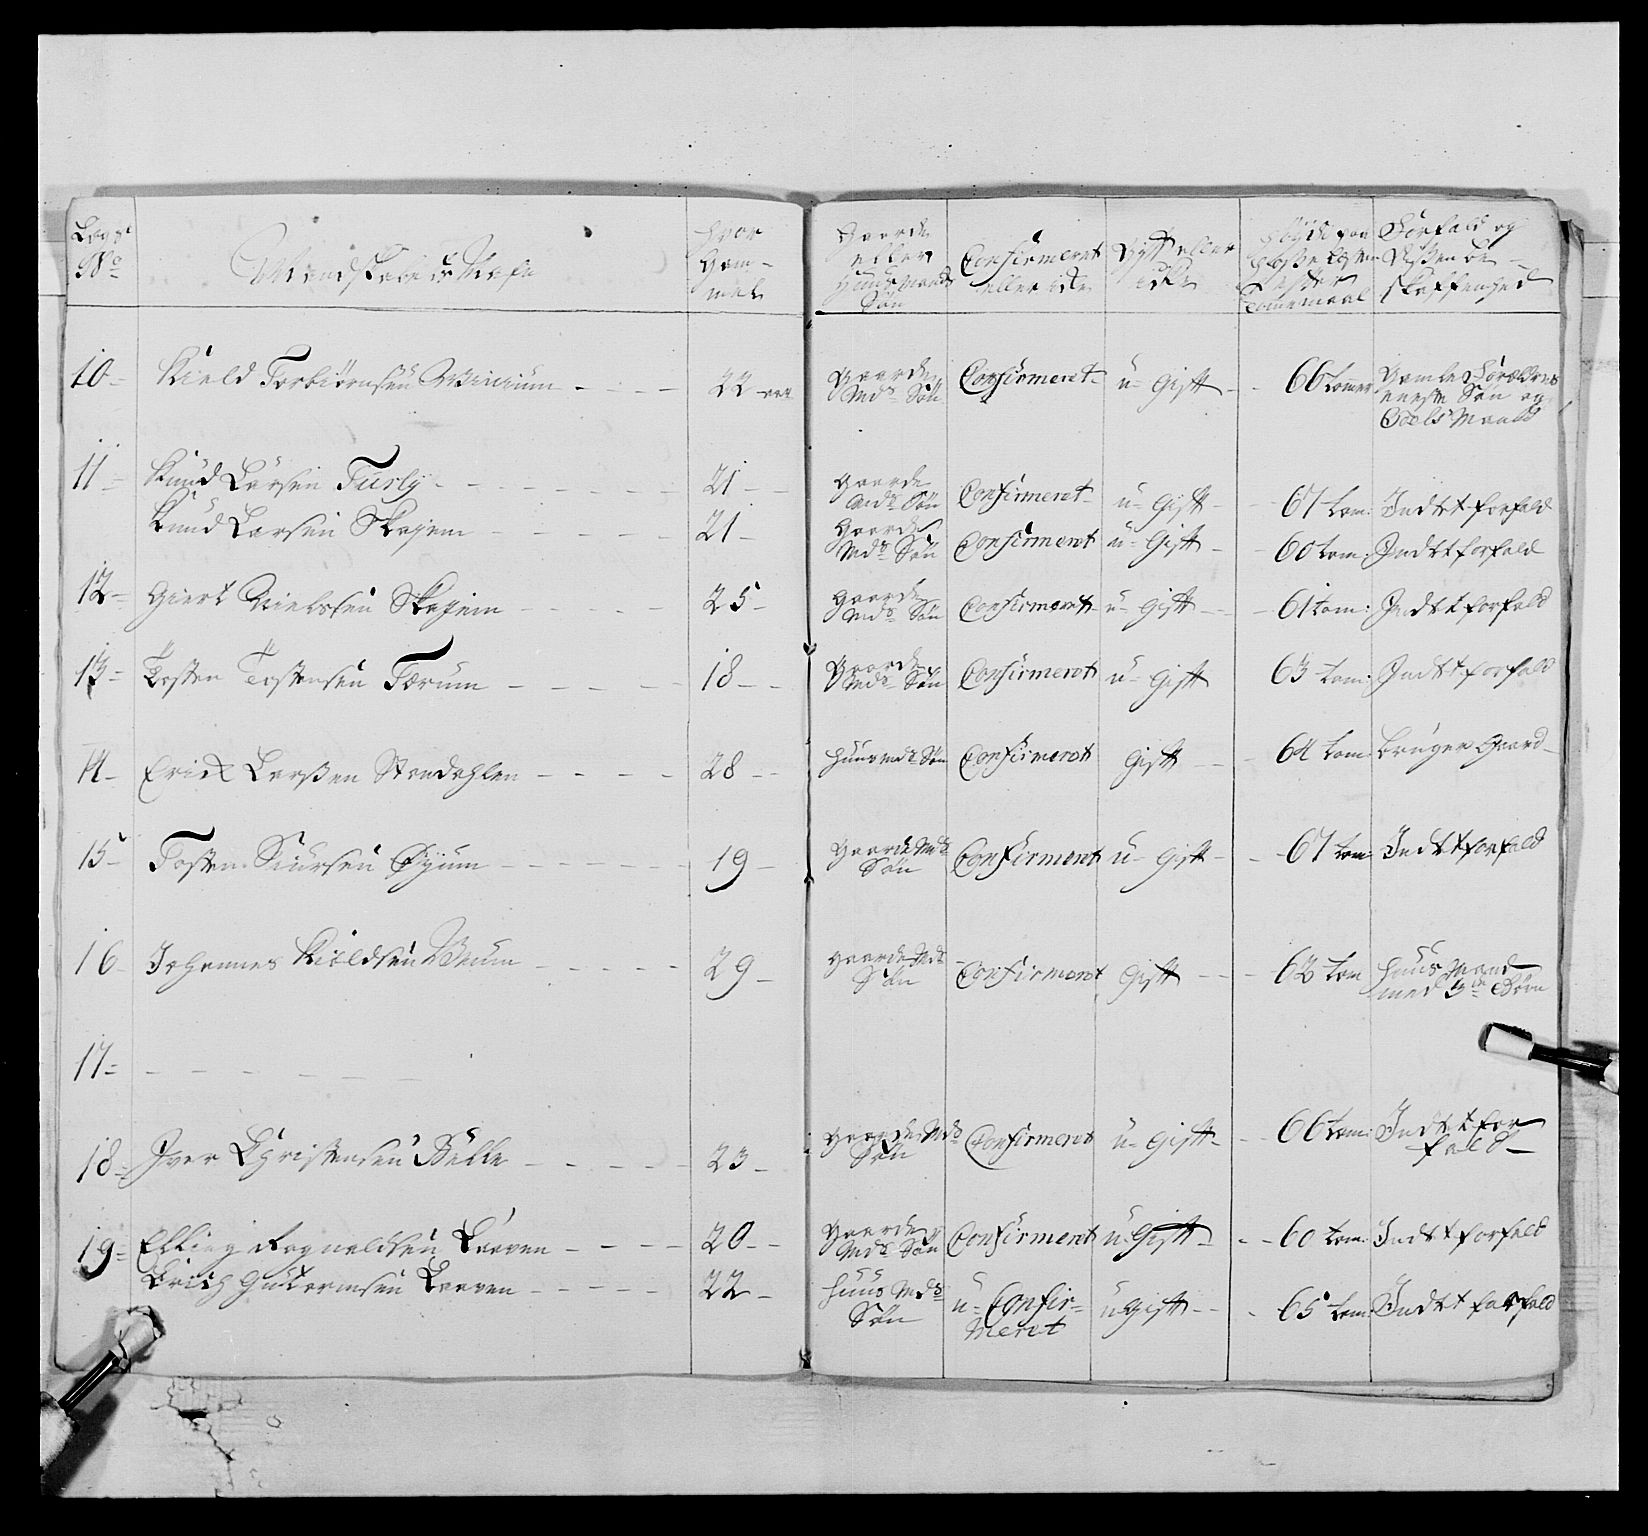 Lægs No | Mandskabets Nafn | Hvor Gam- mel | Gaarde eller Huusmands Søn | Confirmeret eller icke | Gift eller icke | Høyde paa efter Tommemaal | Forfald og Dissen be- skaffenhed
10 = Kield Torbiørnsen - - - 22 aar | Gaarde Mds Søn | Confirmeret | u- Gift - | 66 tomer | Gamle Forældres eneste Søn og Odels Mand
11 = Knud Larsen - - - 21 - | Gaarde Mds Søn | Confirmeret | u- Gift - | 67 tom: | Indtet forfald
Knud Larsen Skajem - - - 21 - | Gaarde Mds Søn | Confirmeret | u- Gift - | 60 tom: | Indtet forfald
12 = Giert Nielssen Skajem - - - 25 - | Gaarde Mds Søn | Confirmeret | u- Gift - | 61 tom: | Indtet forfald
13 = Tosten Tostensen Færum - - - 18 - | Gaarde Mds Søn | Confirmeret | u- Gift | 63 tom: | Indtet forfald
14 - Erick Larssen Stendahlen - - - 28 - | Huusmds Søn | Confirmeret | Gift - | 64 tom: | bruger Gaard -
15 - Tosten Siursen Øÿum - - - 19 - | Gaarde Mds Søn | Confirmeret | u- Gift - | 67 tom: | Indtet forfald
16 - Johannes Kieldsen - - - 29 - | Gaarde Mds Søn | Confirmeret | Gift - | tom | Huus Mand med 3de Børn
17 = - - - - - -
18 = Iver Christensen - - - 23 - | Gaarde Mds Søn | Confirmeret | u- Gift - | 66 tom: | Indtet for fald -
19 = Elling Ragnaldsen - - - 20 - | Gaarde Mds Søn | Confirmeret | u- Gift - | 60 tom: | Indtet forfald
Erich Gutormsen - - - 22 - | Huus Mds Søn | u- Confir- meret | u Gift - | 65 tom: | Indtet forfald